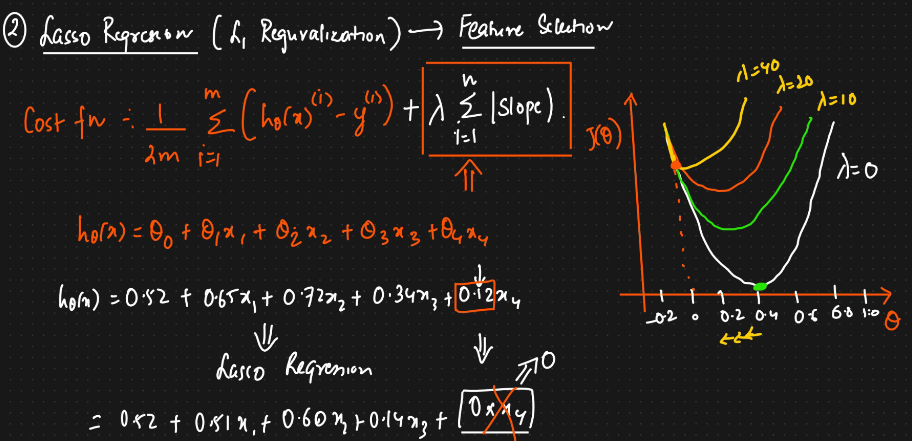 ② Lasso Regression (L₁ Reguralization) → Feature Selection
Cost fn : 1/2m m Σ i=1 (hθ(x)⁽ⁱ⁾ - y⁽ⁱ⁾) + λ n Σ i=1 |Slope|.
hθ(x) = θ₀ + θ₁x₁ + θ₂x₂ + θ₃x₃ + θ₄x₄
hθ(x) = 0.52 + 0.65x₁ + 0.72x₂ + 0.34x₃ + 0.12x₄
Lasso Regression
= 0.52 + 0.51x₁ + 0.60x₂ + 0.14x₃ + 0×x₄ ⇒ 0
λ=40
λ=20
λ=10
λ=0
J(θ)
-0.2 0 0.2 0.4 0.6 1.0 θ